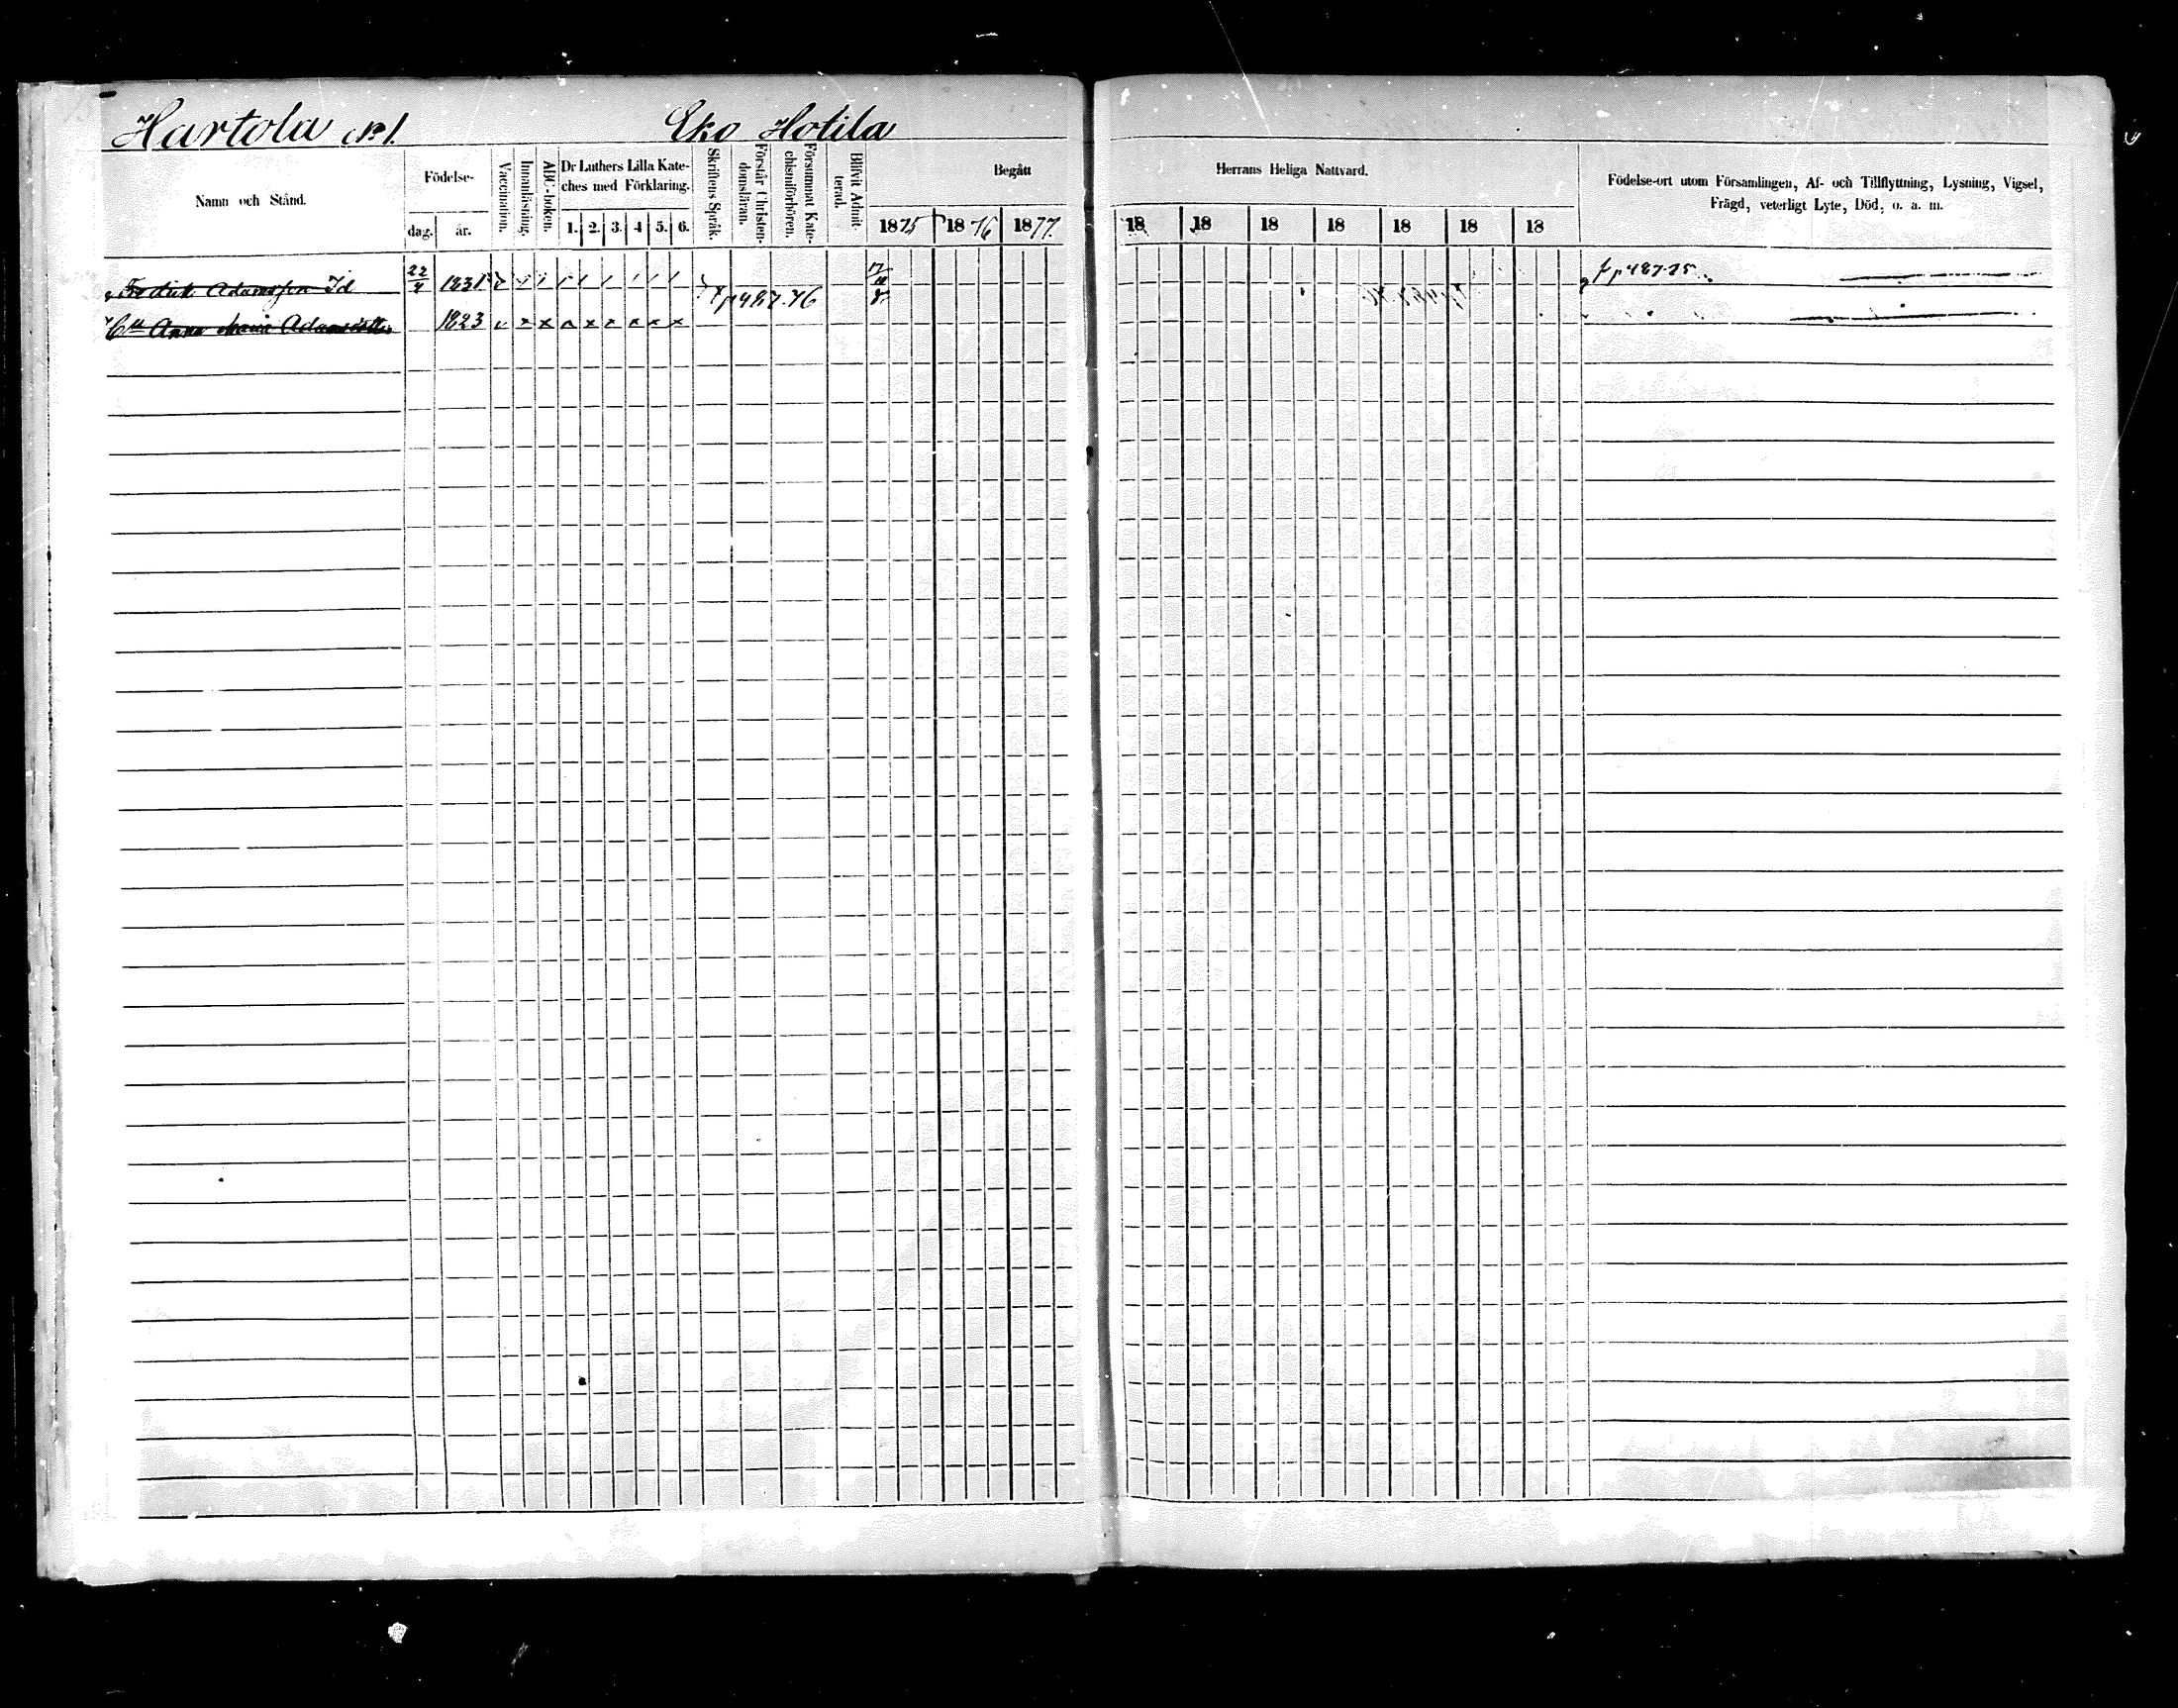 Hartola N:o 1. Eko Hotila
Namn och Stånd. Födelse- dag. år. Vaccination. Innanläsning. ABC-boken. Dr Luthers Lilla Kateches med Förklaring. 1. 2. 3. 4 5. 6. Skriftens Språk. Förstår Christendomsläran. Försummat Katechismiförhören. Blifvit Admitterad. Begått 1875 1876 1877.
Herrans Heliga Nattvard. 18 18 18 18 18 18 18 Födelse-ort utom Församlingen, Af- och Tillflyttning, Lysning, Vigsel,
Frägd, veterligt Lyte, Död, o. a. m.
Fredrik Adamsson Id 22/4 1831 f p 487.75
p 487.76
Anna Maria Adamsdotter 1823 v x x x x x x x x